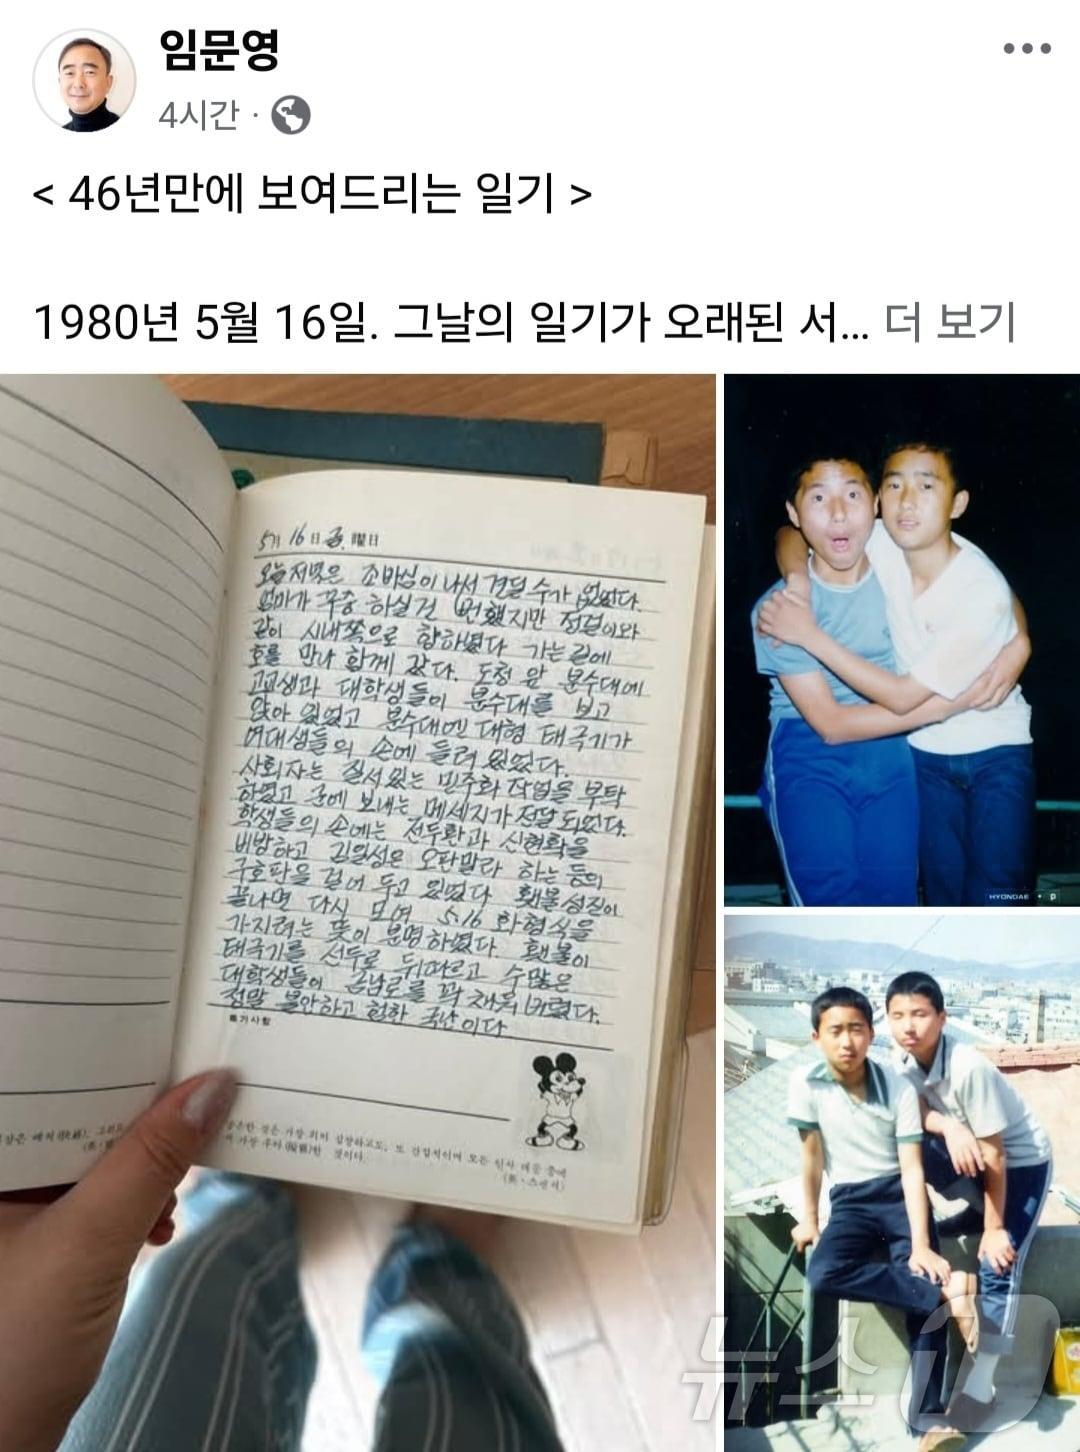 임문영
4시간 ·
< 46년만에 보여드리는 일기 >
1980년 5월 16일. 그날의 일기가 오래된 서... 더 보기
5月 16日 金曜日
오늘저녁은 조바심이 나서 견딜 수가 없었다.
엄마가 꾸중 하실건 뻔했지만 정걸이와
같이 시내쪽으로 향하였다 가는길에
호를 만나 함께 갔다. 도청 앞 분수대에
고교생과 대학생들이 분수대를 보고
앉아 있었고 분수대엔 대형 태극기가
여대생들의 손에 들려 있었다.
사회자는 질서있는 민주화 작업을 부탁
하였고 군에 보내는 메세지가 전달 되었다.
학생들의 손에는 전두환과 신현확을
비방하고 김일성은 오판말라 하는 등의
구호판을 걸어 두고 있었다 횃불성진이
끝나면 다시 모여 5.16 화형식을
가지려는 뜻이 분명하였다. 횃불이
태극기를 선두로 뒤따르고 수많은
대학생들이 금남로를 꽉 채워 버렸다.
정말 불안하고 험한 국난이다
특기사항
HYUNDAE
뉴스1